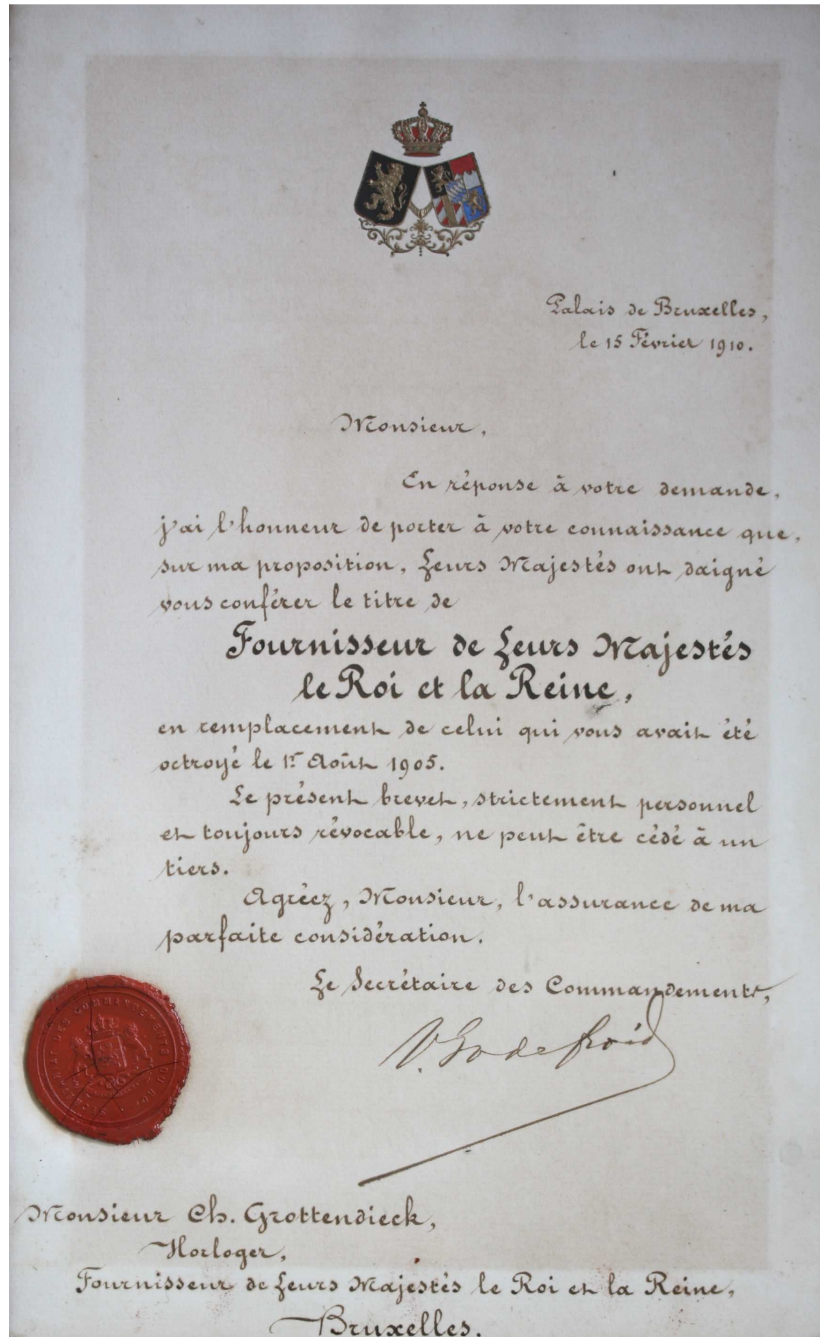 Palais de Bruxelles,
le 15 Février 1910.
Monsieur,
En réponse à votre demande,
j'ai l'honneur de porter à votre connaissance que,
sur ma proposition, Leurs Majestés ont daigné
vous conférer le titre de
Fournisseur de Leurs Majestés
le Roi et la Reine,
en remplacement de celui qui vous avait été
octroyé le 1er Août 1905.
Le présent brevet, strictement personnel
et toujours révocable, ne peut être cédé à un
tiers.
Agréez, Monsieur, l'assurance de ma
parfaite considération.
Le Secrétaire des Commandements,
V. Godefroid
SECRETARIAT DES COMMANDEMENTS DU ROI
Monsieur Ch. Grottendieck,
Horloger,
Fournisseur de Leurs Majestés le Roi et la Reine,
Bruxelles.